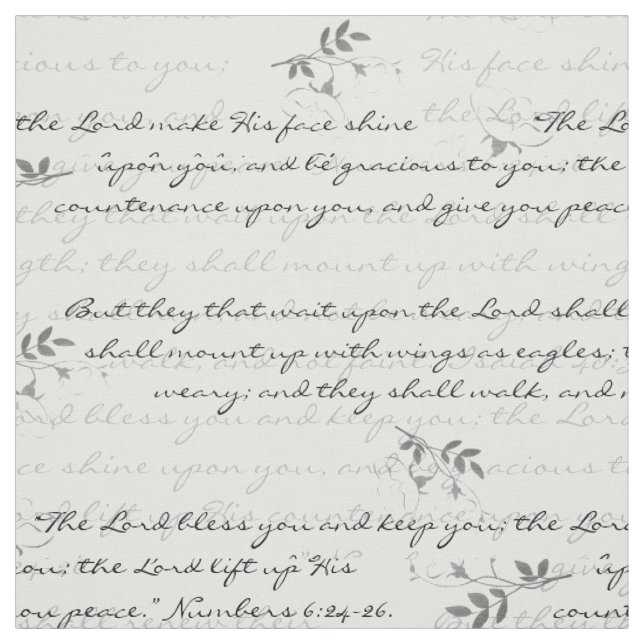 cious to you; His face shine
upon you, and the Lord lift
the Lord make His face shine "The Lo
give you peace
upon you, and be gracious to you; the
countenance upon you, and give you peac
they that wait upon the Lord shall
ngth; they shall mount up with wing
But they that wait upon the Lord shall
shall mount up with wings as eagles; t
walk, and not faint. Isaiah 40:3
weary; and they shall walk, and n
ord bless you and keep you; the Lord
ce shine upon you, and be gracious to
lift up His countenance upon you
"The Lord bless you and keep you; the Lord
ou; the Lord lift up His up
ou peace." Numbers 6:24-26. count
shall renew their But they th